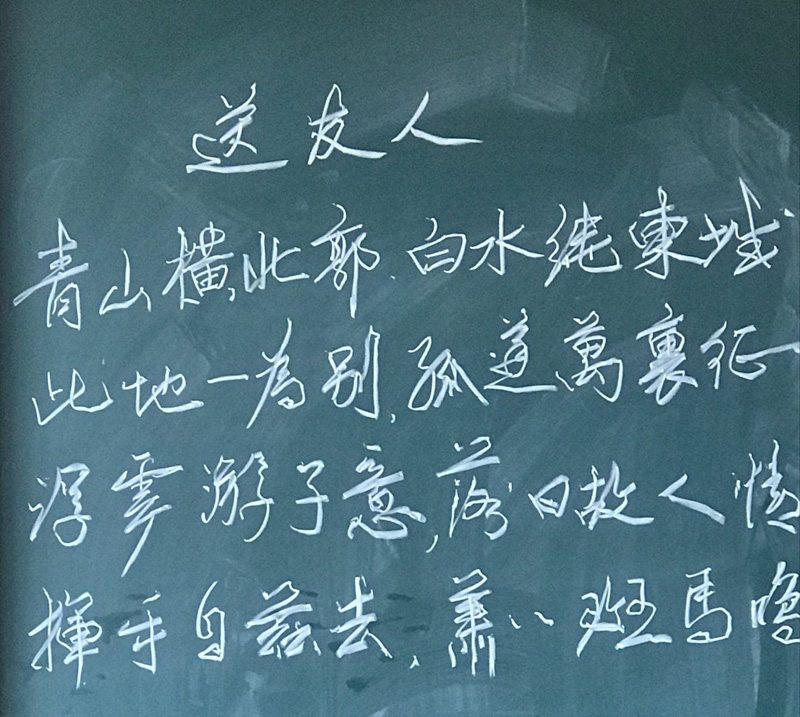 送友人
青山橫北郭.白水繞東城
此地一為別,孤蓬萬裏征
浮雲游子意,落日故人情
揮手自茲去,蕭〃班馬鳴